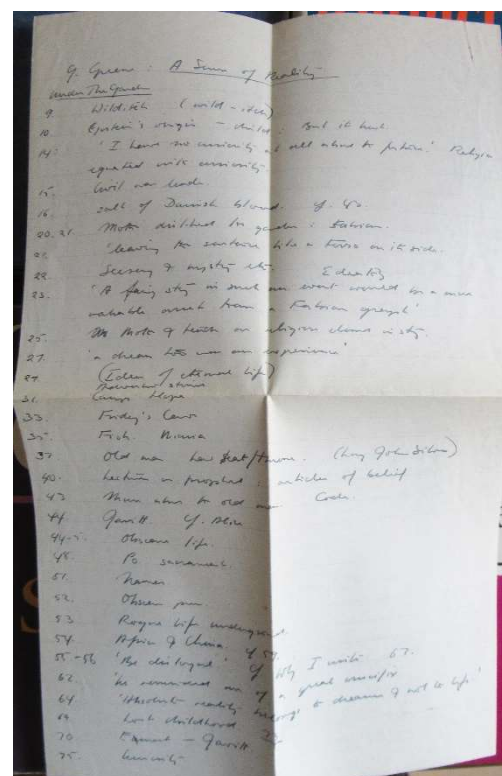 G. Greene : A Sense of Reality
Under The Garden
9. Wilditch (wild-itch)
10. Epstein's origin – child. But it hurt.
14. 'I have no curiosity at all about the future.' Religion
equated with curiosity.
15. Civil war leader.
16. salt of Danish blood. cf. 40.
20.21. Mother disliked the garden : Fabian.
21. 'leaving the sentence like a on its side.
22. Secrecy & mystery etc.
23. 'A fairy story in such an event would be a more
valuable asset than a Fabian
25. Mother & on religious element in story.
27. 'a dream too was an experience'
27 (Eden of eternal life)
31. Camp Hope
33. Friday's Cave
35. Fish.
37. Old man. Throne. (Long John Silver)
40. Lecture on : articles of belief
43 names to old man.
44. Javitt. cf. Alice
44-5. Obscene life.
48. Po sacrament.
51. Names
52. Obscene
53 Rogue life underground.
54. Africa & China. cf 59.
55-56 'Be disloyal' cf Why I Write 67.
62. 'he reminded me of a great crucifix
64 'Absolute reality belongs to dreams & not to life.'
69 Lost childhood.
70 – Javitt.
75. curiosity